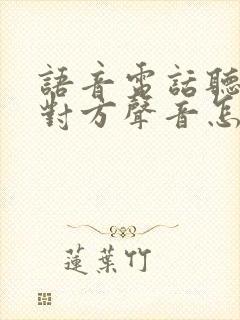 語音電話聽
對方聲音怎
蓮葉竹